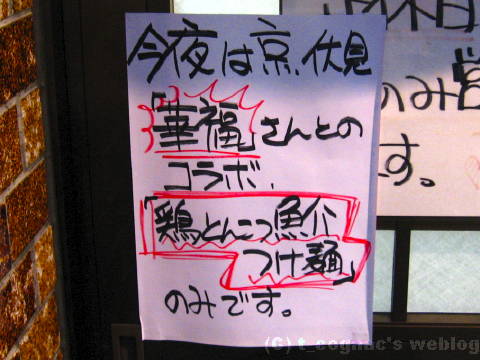 今夜は京、伏見
「華福」さんとの
コラボ、
「鶏とんこつ魚介
つけ麺」
のみです。
休日
のみ営
す。
(C) t_cognac's weblog